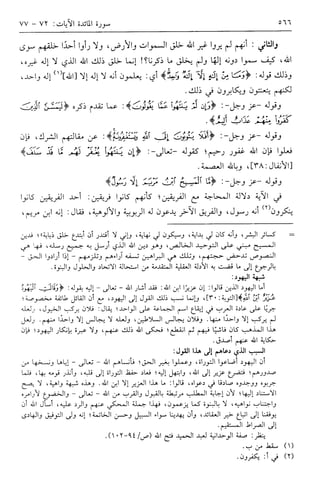 ٥٦٦
سورة المائدة الآيات: ٧٢ - ٧٧
والثاني : أنهم لم يروا غير الله خلق السموات والأرض، ولا رأوا أحدًا خلقهم سوى
الله، كيف سموا دونه إلهًا ولم يخلق ما ذكرنا؟! إنما خلق ذلك الله الذي لا إله غيره،
وذلك قوله: ﴿وَمَا مِنْ إِلَٰهٍ إِلَّا إِلَٰهٌ وَٰحِدٌ﴾ أي: يعلمون أنه لا إله إلا [الله](١) إله واحد،
لكنهم يتعنتون ويكابرون في ذلك.
وقوله -عز وجل-: ﴿وَإِن لَّمْ يَنتَهُوا عَمَّا يَقُولُونَ﴾: عما تقدم ذكره ﴿لَيَمَسَّنَّ الَّذِينَ
كَفَرُوا مِنْهُمْ عَذَابٌ أَلِيمٌ﴾.
وقوله -عز وجل-: ﴿أَفَلَا يَتُوبُونَ إِلَى اللَّهِ وَيَسْتَغْفِرُونَهُ﴾: عن مقالتهم الشرك، فإن
فعلوا فإن الله غفور رحيم؛ كقوله -تعالى-: ﴿إِن يَنتَهُوا يُغْفَرْ لَهُم مَّا قَدْ سَلَفَ﴾
[الأنفال: ٣٨]، وبالله العصمة.
وقوله -عز وجل-: ﴿مَّا الْمَسِيحُ ابْنُ مَرْيَمَ إِلَّا رَسُولٌ﴾
في الآية دلالة المحاجة مع الفريقين؛ كأنهم كانوا فريقين: أحد الفريقين كانوا
ينكرون(٢) أنه رسول، والفريق الآخر يدعون له الربوبية والألوهية، فقال: إنه ابن مريم،
= كسائر البشر، وأنه كان له بداية، وسيكون له نهاية،
المسيح مبني على التوحيد الخالص، وهو دين الله الذي أرسل به جميع رسله، فها هي
النصوص تدحض حجتهم، وتلك هي البراهين تسفه آراءهم وتلزمهم - إذا أرادوا الحق -
بالرجوع إلى ما قضت به الأدلة العقلية المتقدمة من استحالة الاتحاد والحلول والبنوة.
شبهة اليهود:
أما اليهود الذين قالوا: إن عزيرًا ابن الله: فقد أشار الله - تعالى - إليه بقوله: ﴿وَقَالَتِ الْيَهُودُ
عُزَيْرٌ ابْنُ اللَّهِ﴾ [التوبة: ٣٠]، وإنما نسب ذلك القول إلى اليهود، مع أن القائل طائفة مخصوصة؛
جريًا على عادة العرب في إيقاع اسم الجماعة على الواحد؛ يقال: فلان يركب الخيول، ولعله
لم يركب إلا واحدًا منها. وفلان يجالس السلاطين، ولعله لا يجالس إلا واحدًا منهم. ولعل
هذا المذهب كان فاشيًا فيهم ثم انقطع؛ فحكى الله ذلك عنهم، ولا عبرة بإنكار اليهود؛ فإن
حكاية الله عنهم أصدق.
السبب الذي دعاهم إلى هذا القول:
أن اليهود أضاعوا التوراة، وعملوا بغير الحق؛ فأنساهم الله - تعالى - إياها ونسخها من
صدورهم؛ فتضرع عزير إلى الله، وابتهل إليه؛ فعاد حفظ التوراة إلى قلبه، وأنذر قومه بها، فلما
جربوه ووجدوه صادقا في دعواه، قالوا: ما هذا العزير إلا ابن الله. وهذه شبهة واهية، لا يصح
الاستناد إليها؛ لأن إجابة المطلب مرتبطة بالقبول والقرب من الله - تعالى - والخضوع لأوامره
واجتناب نواهيه، لا بالبنوة كما يزعمون، فهذا جملة المحكي عنهم والرد عليه، أسأل الله أن
يوفقنا إلى اتباع خير العقائد، وأن يهدينا سواء السبيل وحسن الخاتمة؛ إنه ولى التوفيق والهادي
إلى الصراط المستقيم.
ينظر: صفة الوحدانية لعبد الحميد فتح الله (ص/٩٤-١٠٢).
(١) سقط من ب.
(٢) في أ: يكفرون.